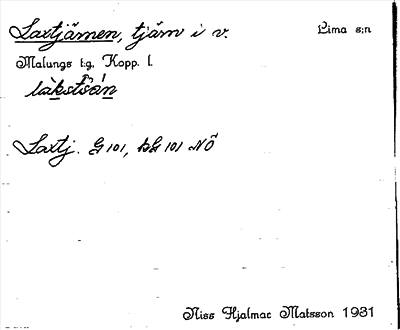 Laxtjärnen, tjärn i v. Lima s:n
Malungs t:g, Kopp. l.
Laxtj. G 101, bG 101 NÖ
Niss Hjalmar Matsson 1931